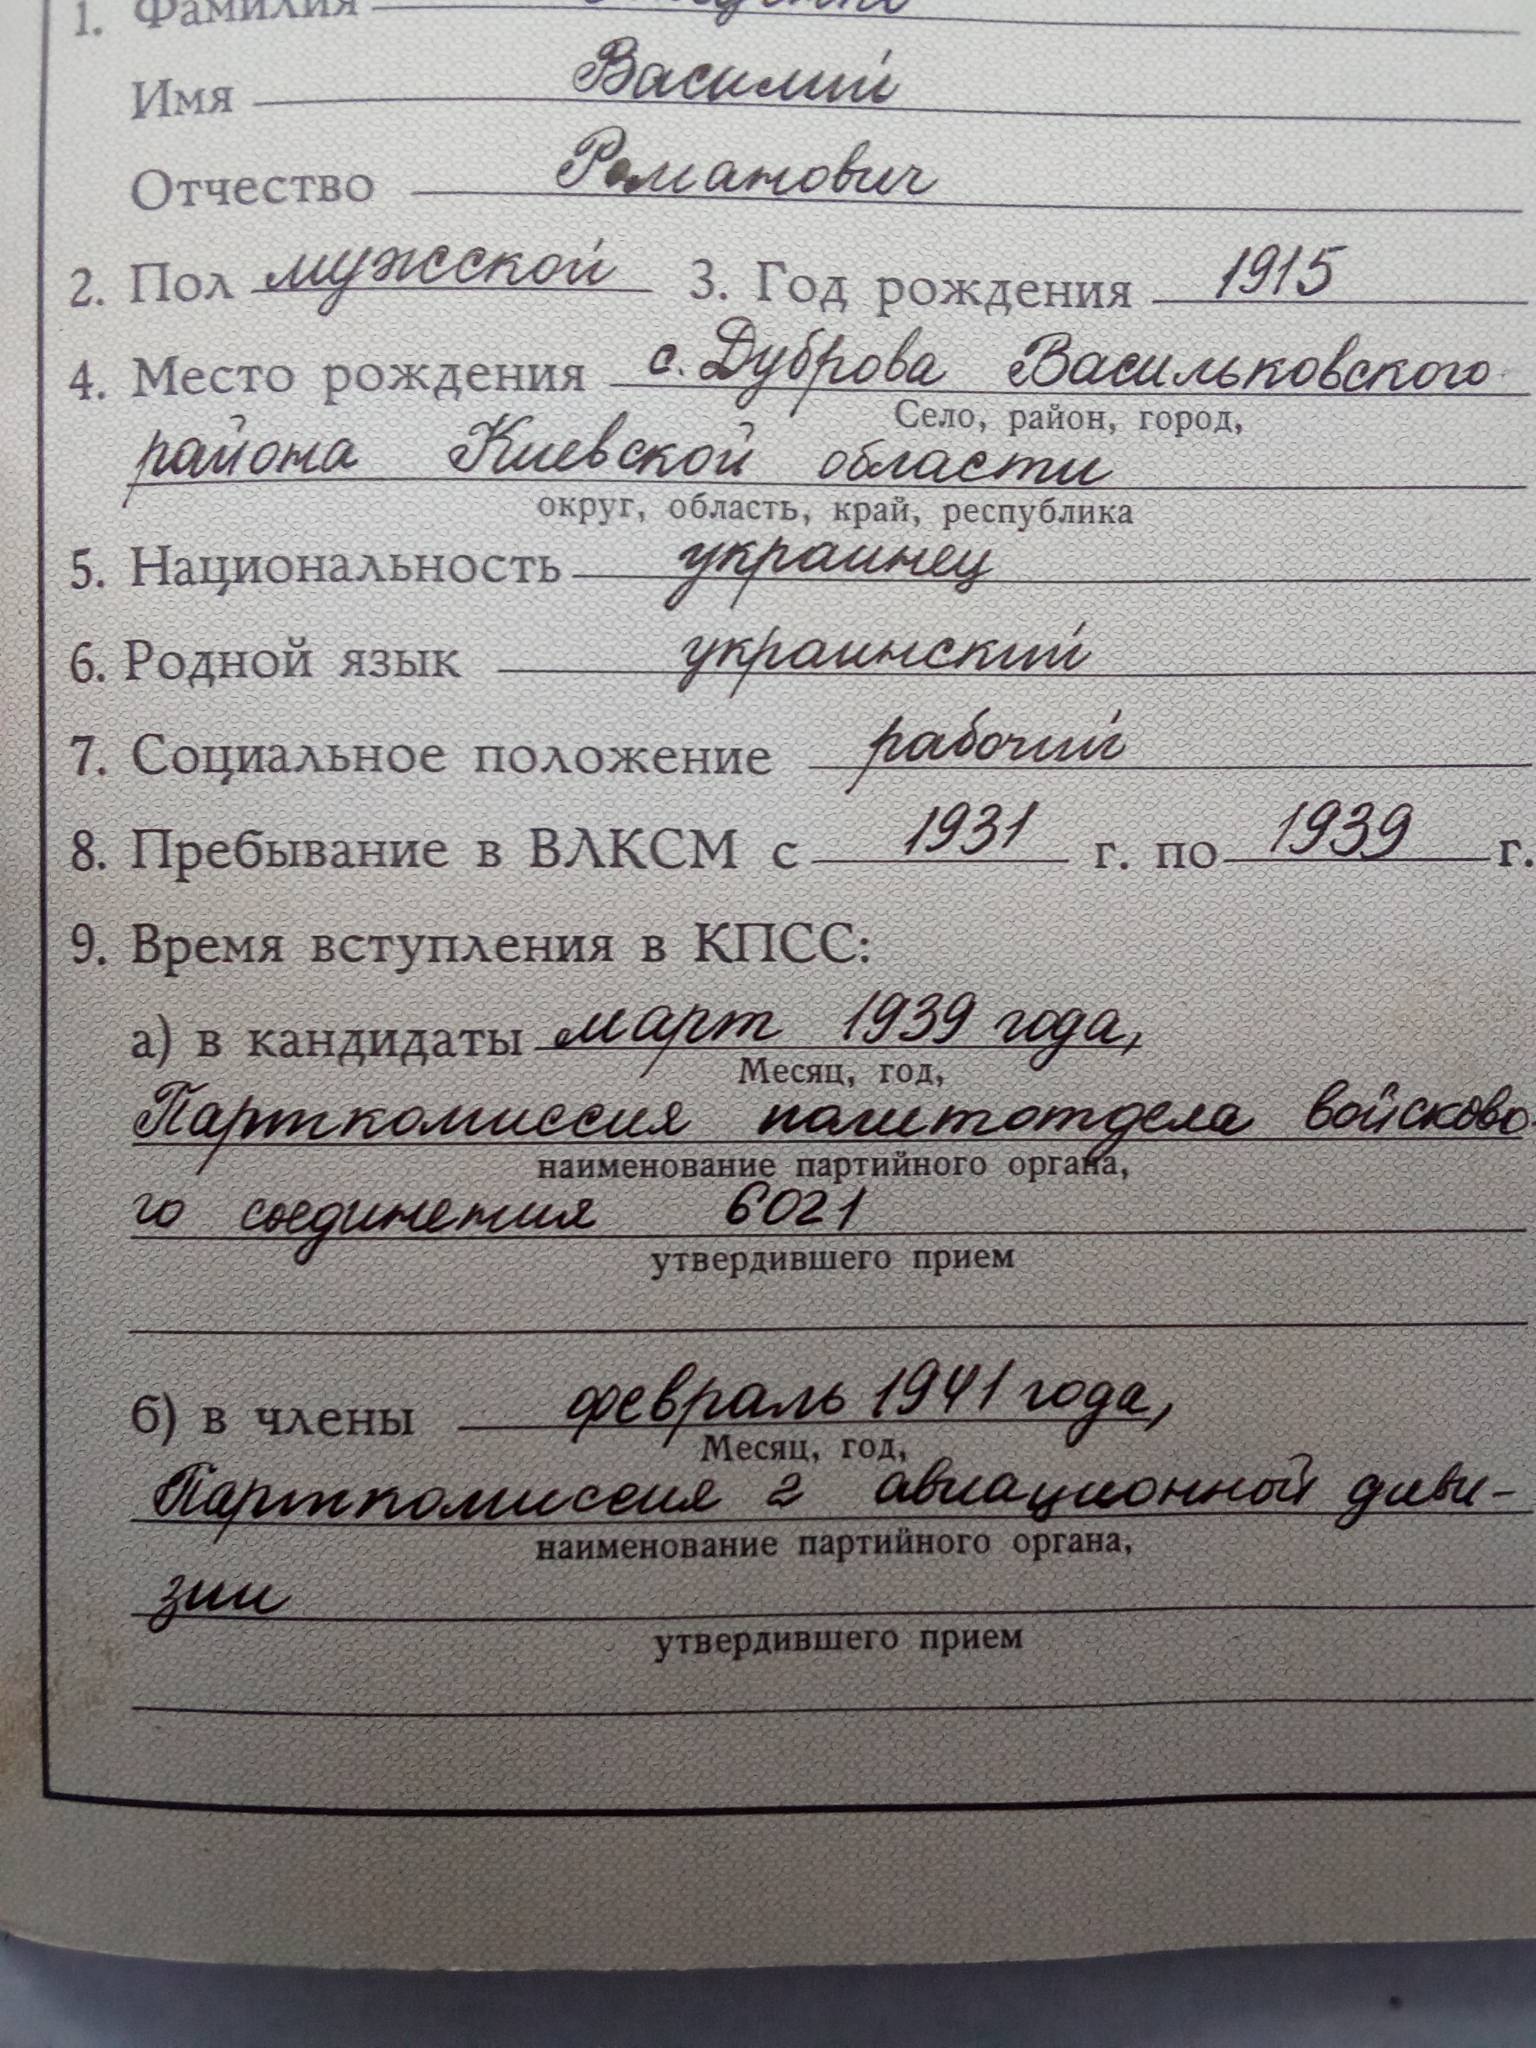 1. Фамилия
Имя Василий
Отчество Романович
2. Пол мужской 3. Год рождения 1915
4. Место рождения с. Дуброва Васильковского
Село, район, город,
района Киевской области
округ, область, край, республика
5. Национальность украинец
6. Родной язык украинский
7. Социальное положение рабочий
8. Пребывание в ВЛКСМ с 1931 г. по 1939 г.
9. Время вступления в КПСС:
а) в кандидаты март 1939 года,
Месяц, год,
Парткомиссия политотдела войсково-
наименование партийного органа,
го соединения 6021
утвердившего прием
б) в члены февраль 1941 года,
Месяц, год,
Парткомиссия 2 авиационной диви-
наименование партийного органа,
зии
утвердившего прием